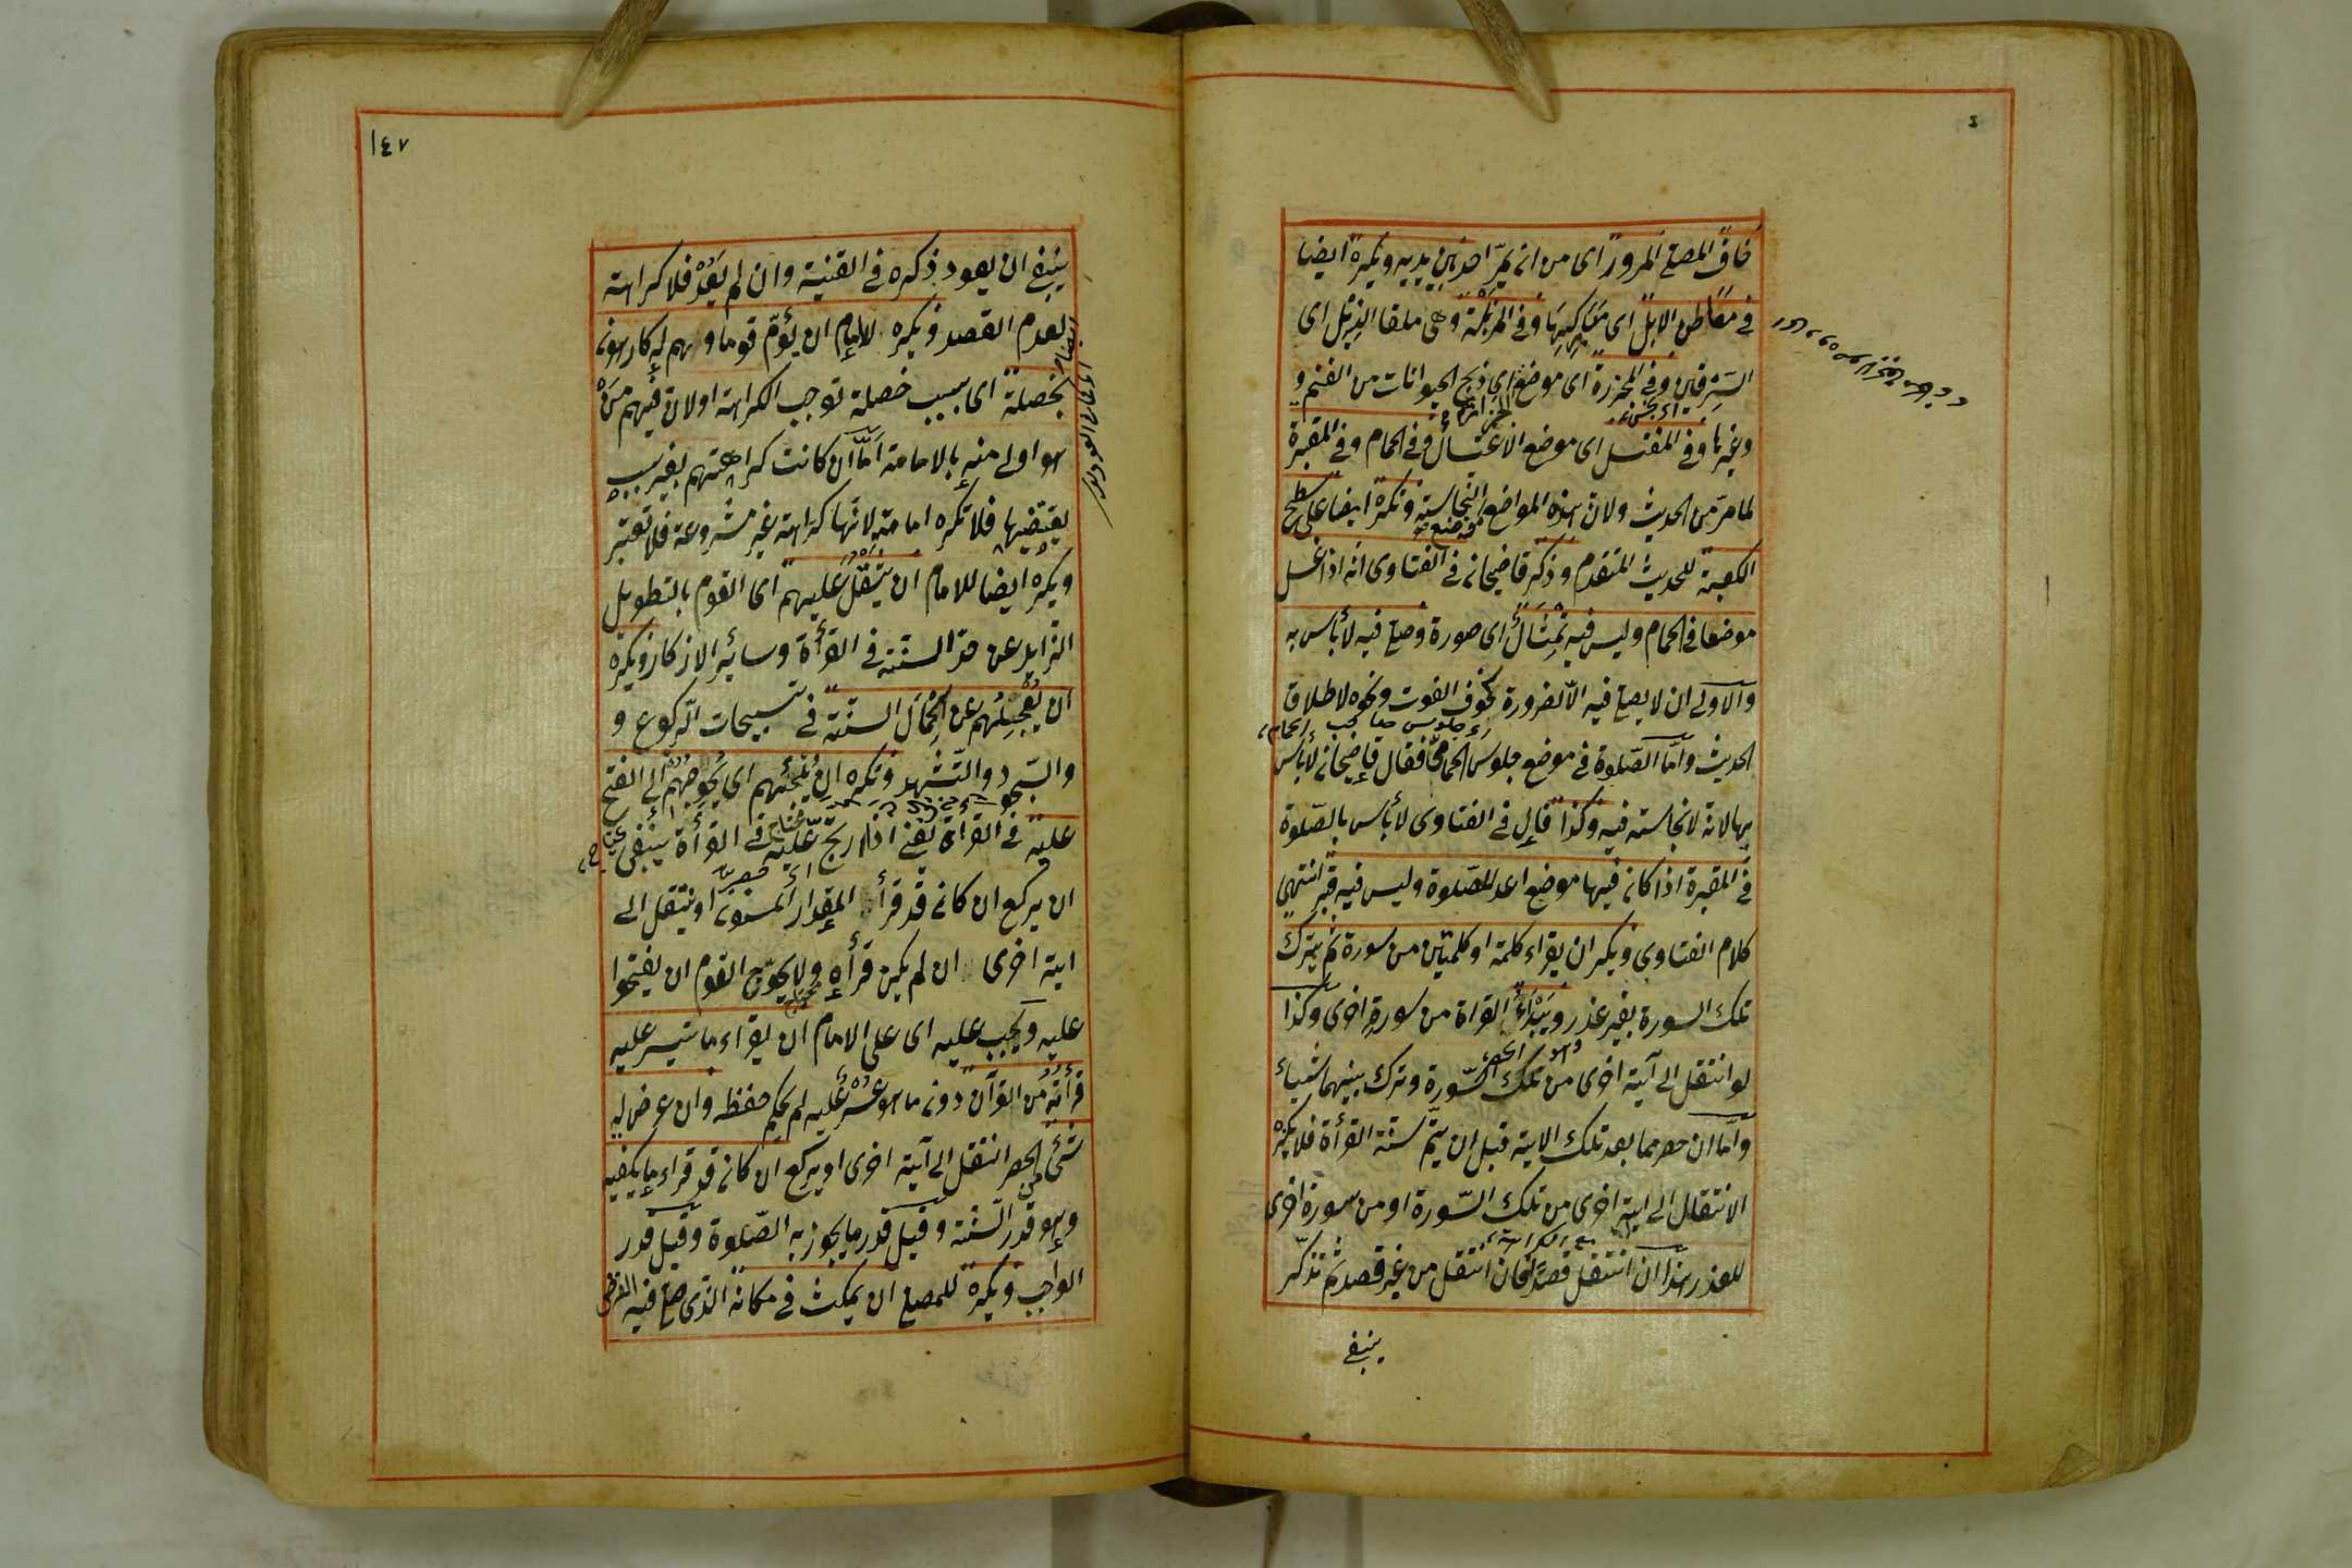 خاف المصلى المرور اى من ان يمر احد بين يديه ويكره ايضا
فى معاطن الابل اى مباركها وفى المزبلة وهى ملقا الزبل اى
السرقين وفى المجزرة اى موضع اى ذبح الحيوانات من الغنم و
وغيرها وفى المغتسل اى موضع الاغتسال وفى الحمام وفى المقبرة
لما مر من الحديث ولان هذه المواضع النجاسة وتكره ايضا على سطح
الكعبة للحديث المتقدم وذكر قاضيخان فى الفتاوى انه اذا غسل
موضعا فى الحمام وليس فيه تمثال اى صورة وصلى فيه لا بأس به
والاولى ان لا يصلى فيه الا لضرورة كخوف الفوت ونحوه لاطلاق
الحديث واما الصلوة فى موضع جلوس الحمامى فقال قاضيخان لا بأس
بها لانه لا نجاسة فيه وكذا قال فى الفتاوى لا بأس بالصلوة
فى المقبرة اذا كان فيها موضع اعد للصلوة وليس فيه قبر انتهى
كلام الفتاوى ويكره ان يقراء كلمة او كلمتين من سورة ثم يترك
تلك السورة بغير عذر ويبدأ القراة من سورة اخرى وكذا
لو انتقل الى آية اخرى من تلك السورة وترك بينهما شياء
واما ان حصر مما بعد تلك الاية قبل ان يتم سنة القرأة فلا يكره
الانتقال الى اية اخرى من تلك السورة او من سورة اخرى
للعذر هذا ان انتقل قصدا فان انتقل من غير قصد ثم تذكر
ينبغى
١٤٧
ينبغى ان يعود ذكره فى القنية وان لم يعد فلا كراهة
لعدم القصد ويكره للامام ان يؤم قوما وهم له كارهون
بخصلة اى بسبب خصلة توجب الكراهة اولان فيهم من
هو اولى منه بالامامة اما ان كانت كراهتهم بغير سبب
يقتضيها فلا تكره امامته لانها كراهة غير مشروعة فلا تعتبر
ويكره ايضا للامام ان يثقل عليهم اى القوم بالتطويل
الزايد عن حد السنة فى القرأة وسائر الاذكار ويكره
ان يعجلهم عن اكمال السنة فى تسبيحات الركوع و
والسجود والتشهد ويكره ان يلجئهم اى يحوجهم الى الفتح
عليه فى القراة يعنى اذا ارتج عليه فى القرأة ينبغى
ان يركع ان كان قد قرأ المقدار المسنون او ينتقل الى
اية اخرى ان لم يكن قرأه ولا يحوج القوم ان يفتحوا
عليه ويجب عليه اى على الامام ان يقراء ما تيسر عليه
قرأته من القرآن دون ما هو عسر عليه لم يحكم حفظه وان عرض له
شئ من الحصر انتقل الى آية اخرى او يركع ان كان قد قراء ما يكفيه
وهو قدر السنة وقيل قدر ما يجوز به الصلوة وقيل قدر
الواجب ويكره للمصلى ان يمكث فى مكانه الذى صلى فيه الفرض